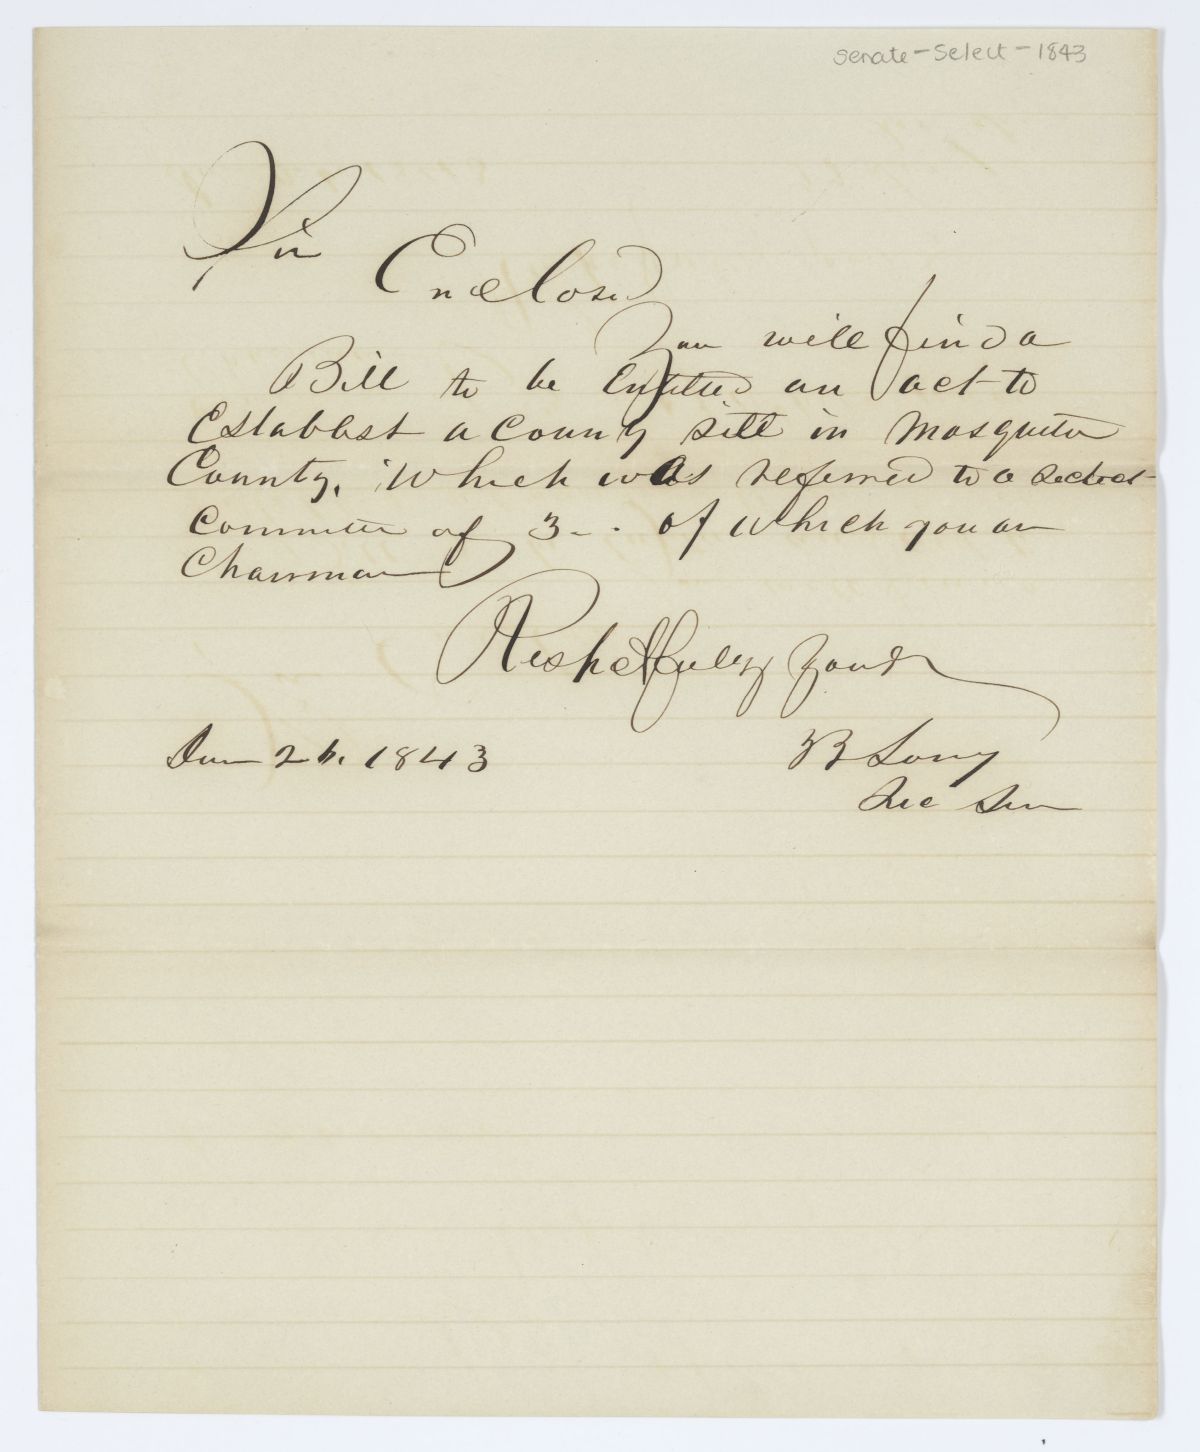 Senate-Select-1843
Sir
Enclosed
You will find a
Bill to be Entitled an act to
Establist a County sitt in Mosquito
County, Which was referred to a Select
Committe of 3 - . of which you are
Chairman
Respectfully yours
26. 1843
B
Sec Sen